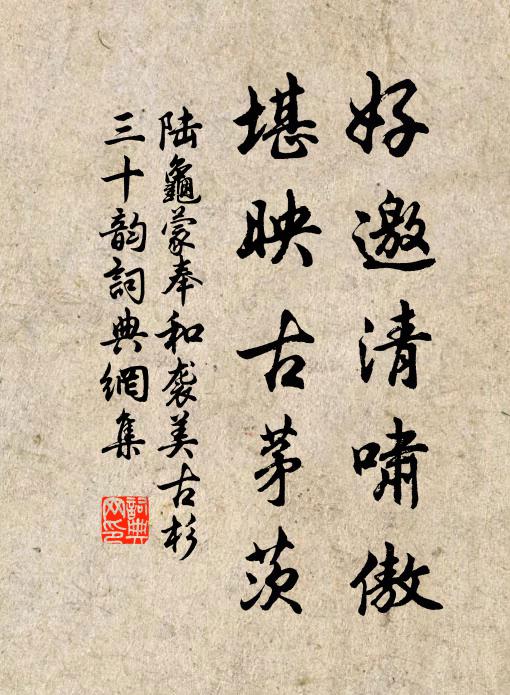 好邀清啸傲
堪映古茅茨
陆龜蒙奉和袭美古杉
三十韵詞典網集
詞典網印